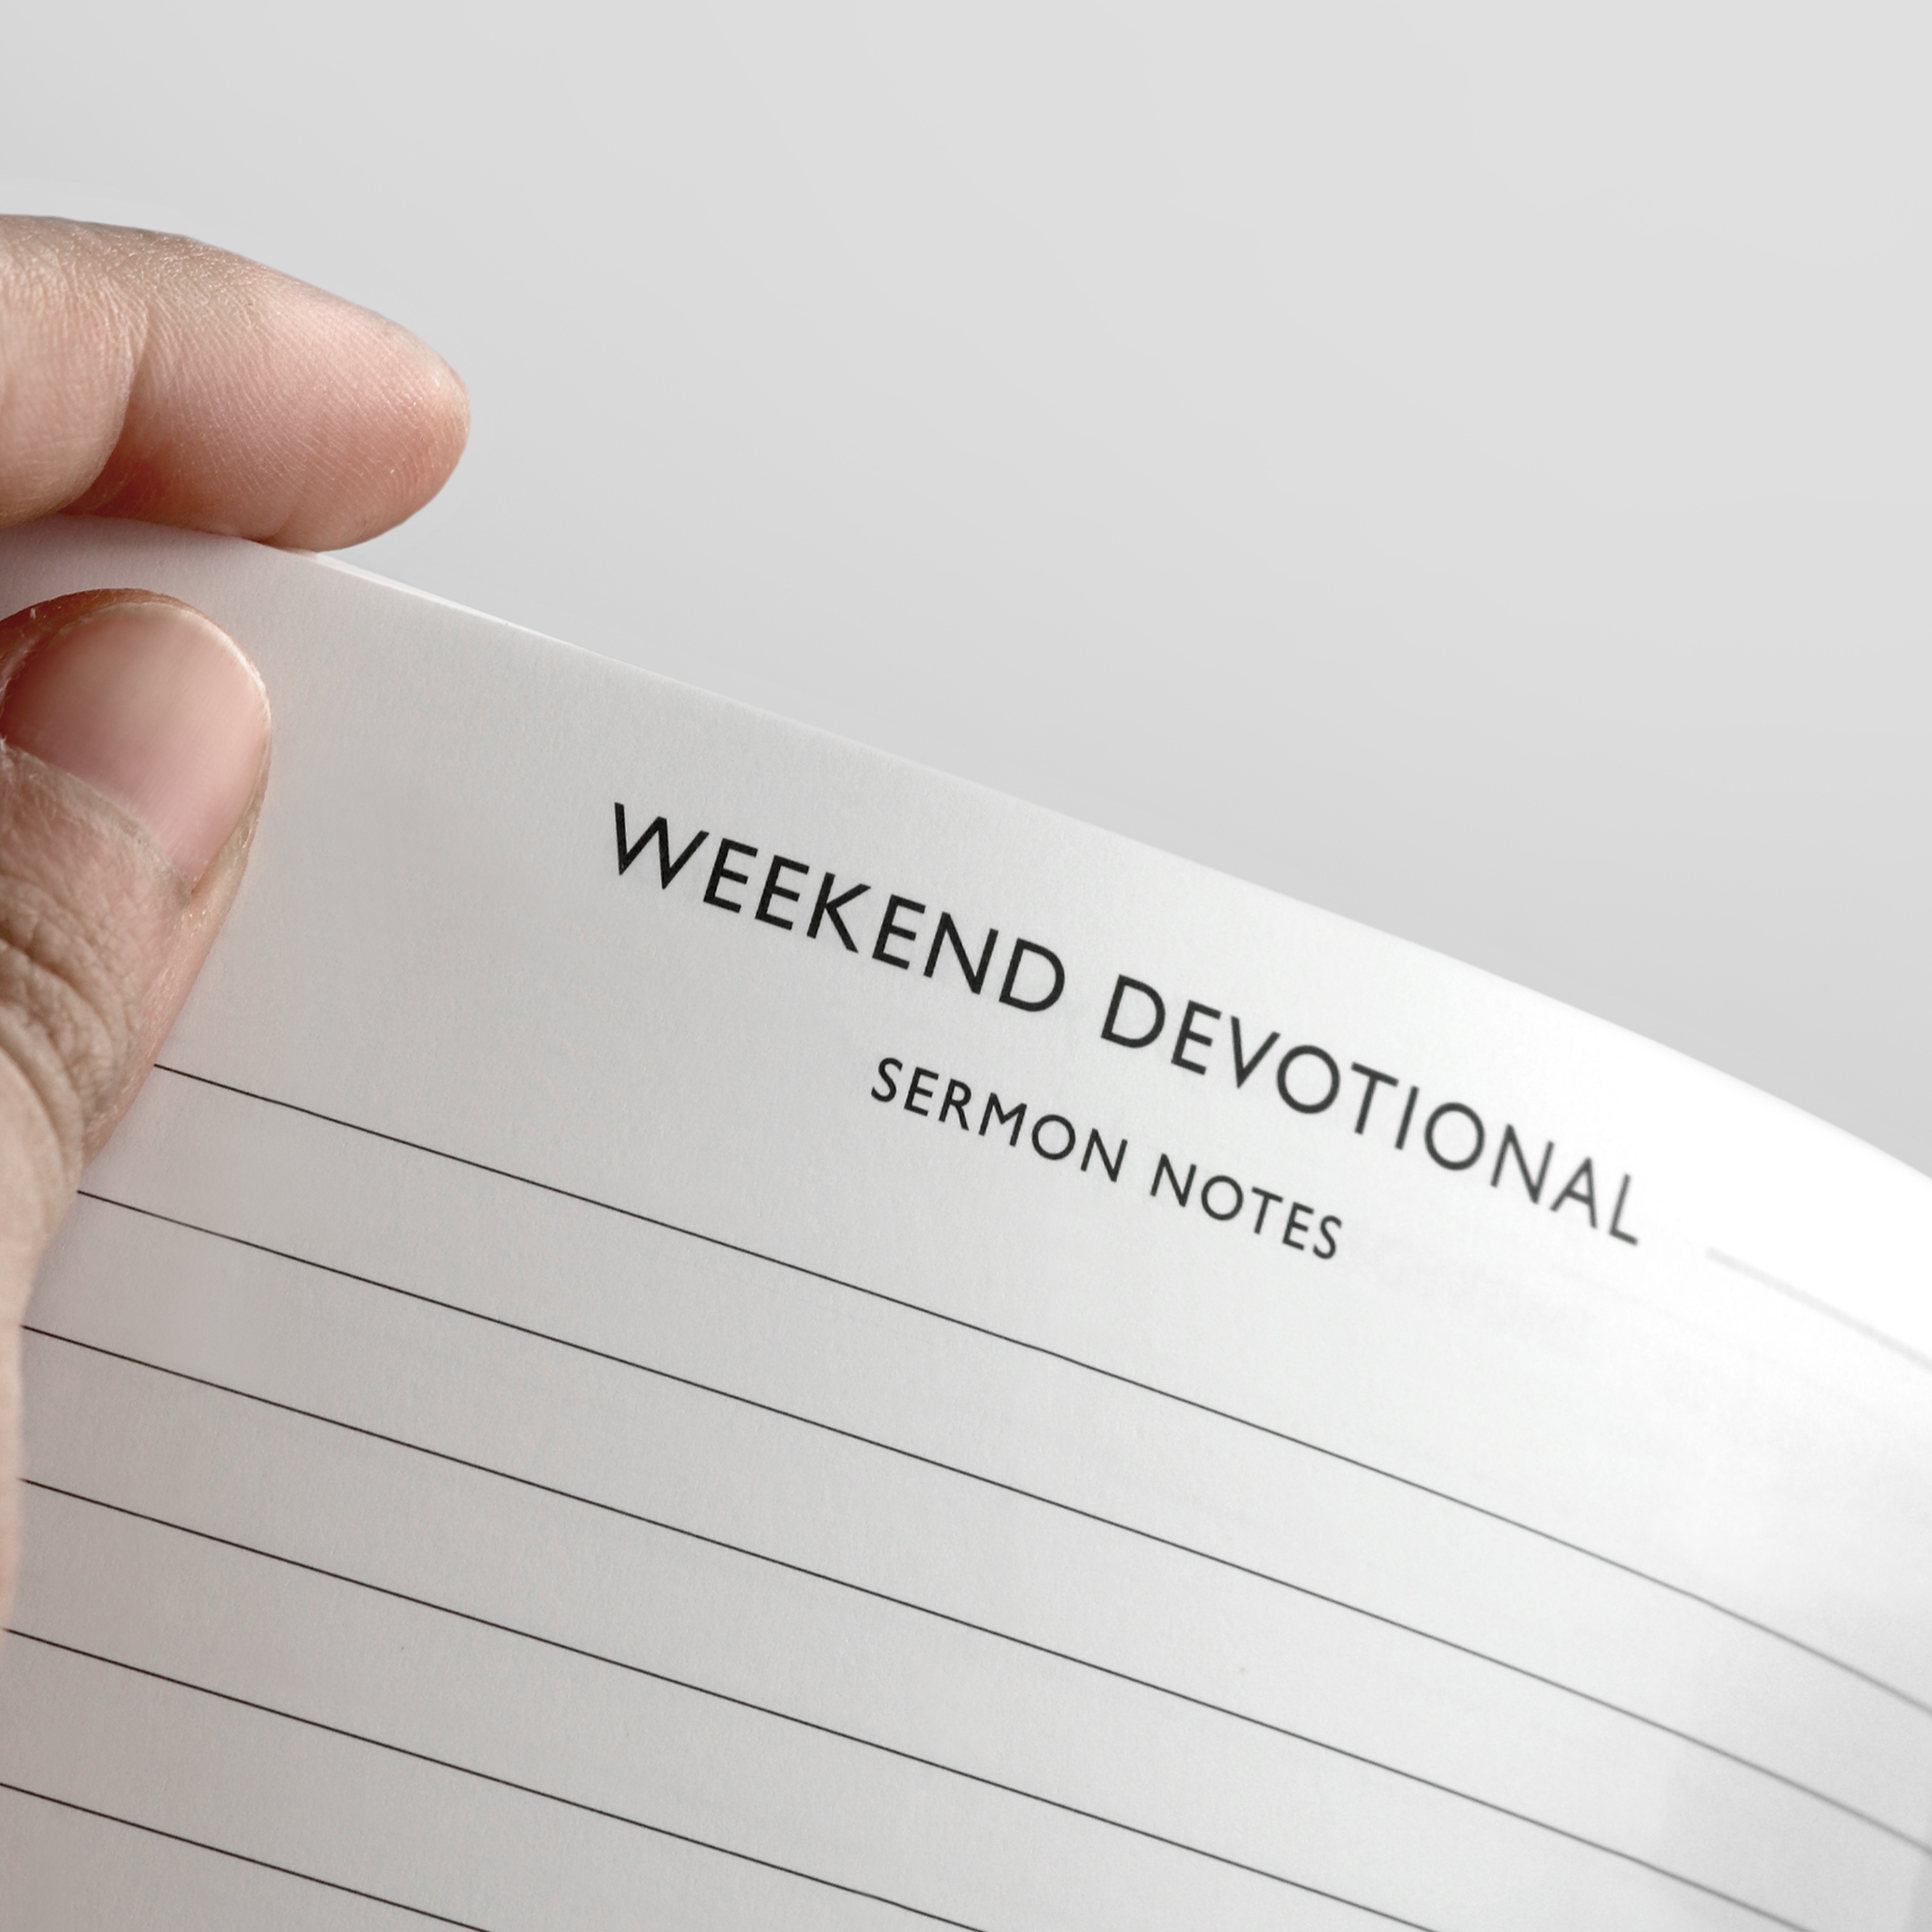 WEEKEND DEVOTIONAL
SERMON NOTES